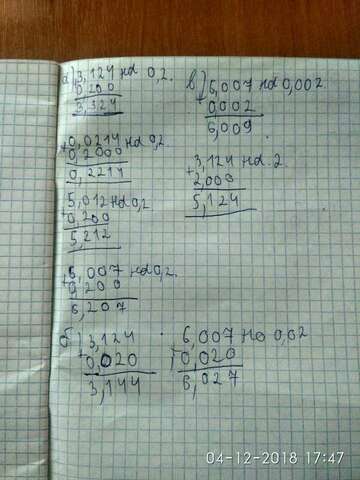 а) 3,124 на 0,2.
+ 0,200
3,324
+ 0,0214 на 0,2.
0,2000
0,2214
5,012 на 0,2
+ 0,200
5,212
+ 6,007 на 0,2.
0,200
6,207
б) 3,124
+ 0,020
3,144
6,007 на 0,02
+ 0,020
6,027
в) 6,007 на 0,002
+ 0,002
6,009
3,124 на 2
+ 2,000
5,124
04-12-2018 17:47